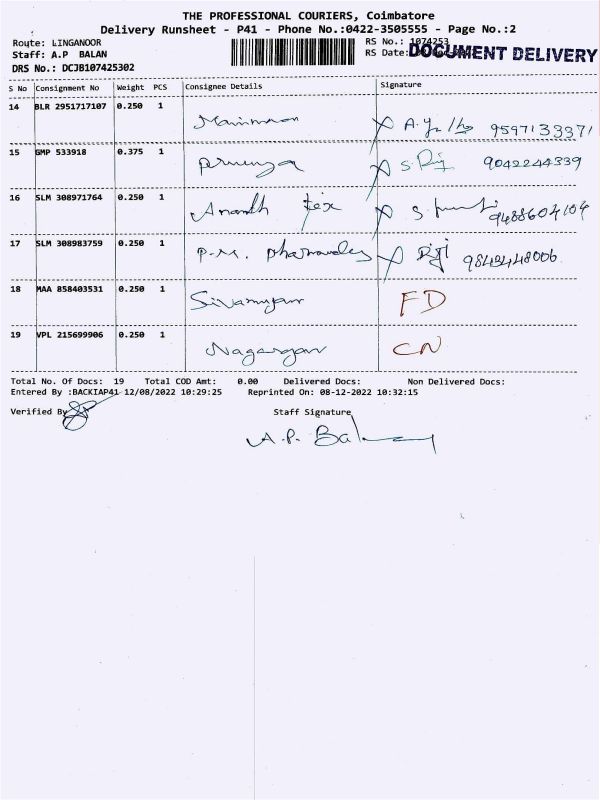 THE PROFESSIONAL COURIERS, Coimbatore
Delivery Runsheet - P41 - Phone No.:0422-3505555 - Page No.:2
Route: LINGANOOR RS No.: 1074253
Staff: A.P BALAN RS Date: DOCUMENT DELIVERY
DRS No.: DCJB107425302
S No Consignment No Weight PCS Consignee Details Signature
14 BLR 2951717107 0.250 1
9597133371
15 GMP 533918 0.375 1
9042244339
16 SLM 308971764 0.250 1 Anandh Tex
9488604104
17 SLM 308983759 0.250 1 P.M.
18 MAA 858403531 0.250 1 FD
19 VPL 215699906 0.250 1 CN
Total No. Of Docs: 19 Total COD Amt: 0.00 Delivered Docs: Non Delivered Docs:
Entered By :BACKIAP41 12/08/2022 10:29:25 Reprinted On: 08-12-2022 10:32:15
Verified By Staff Signature
A.P. Balan